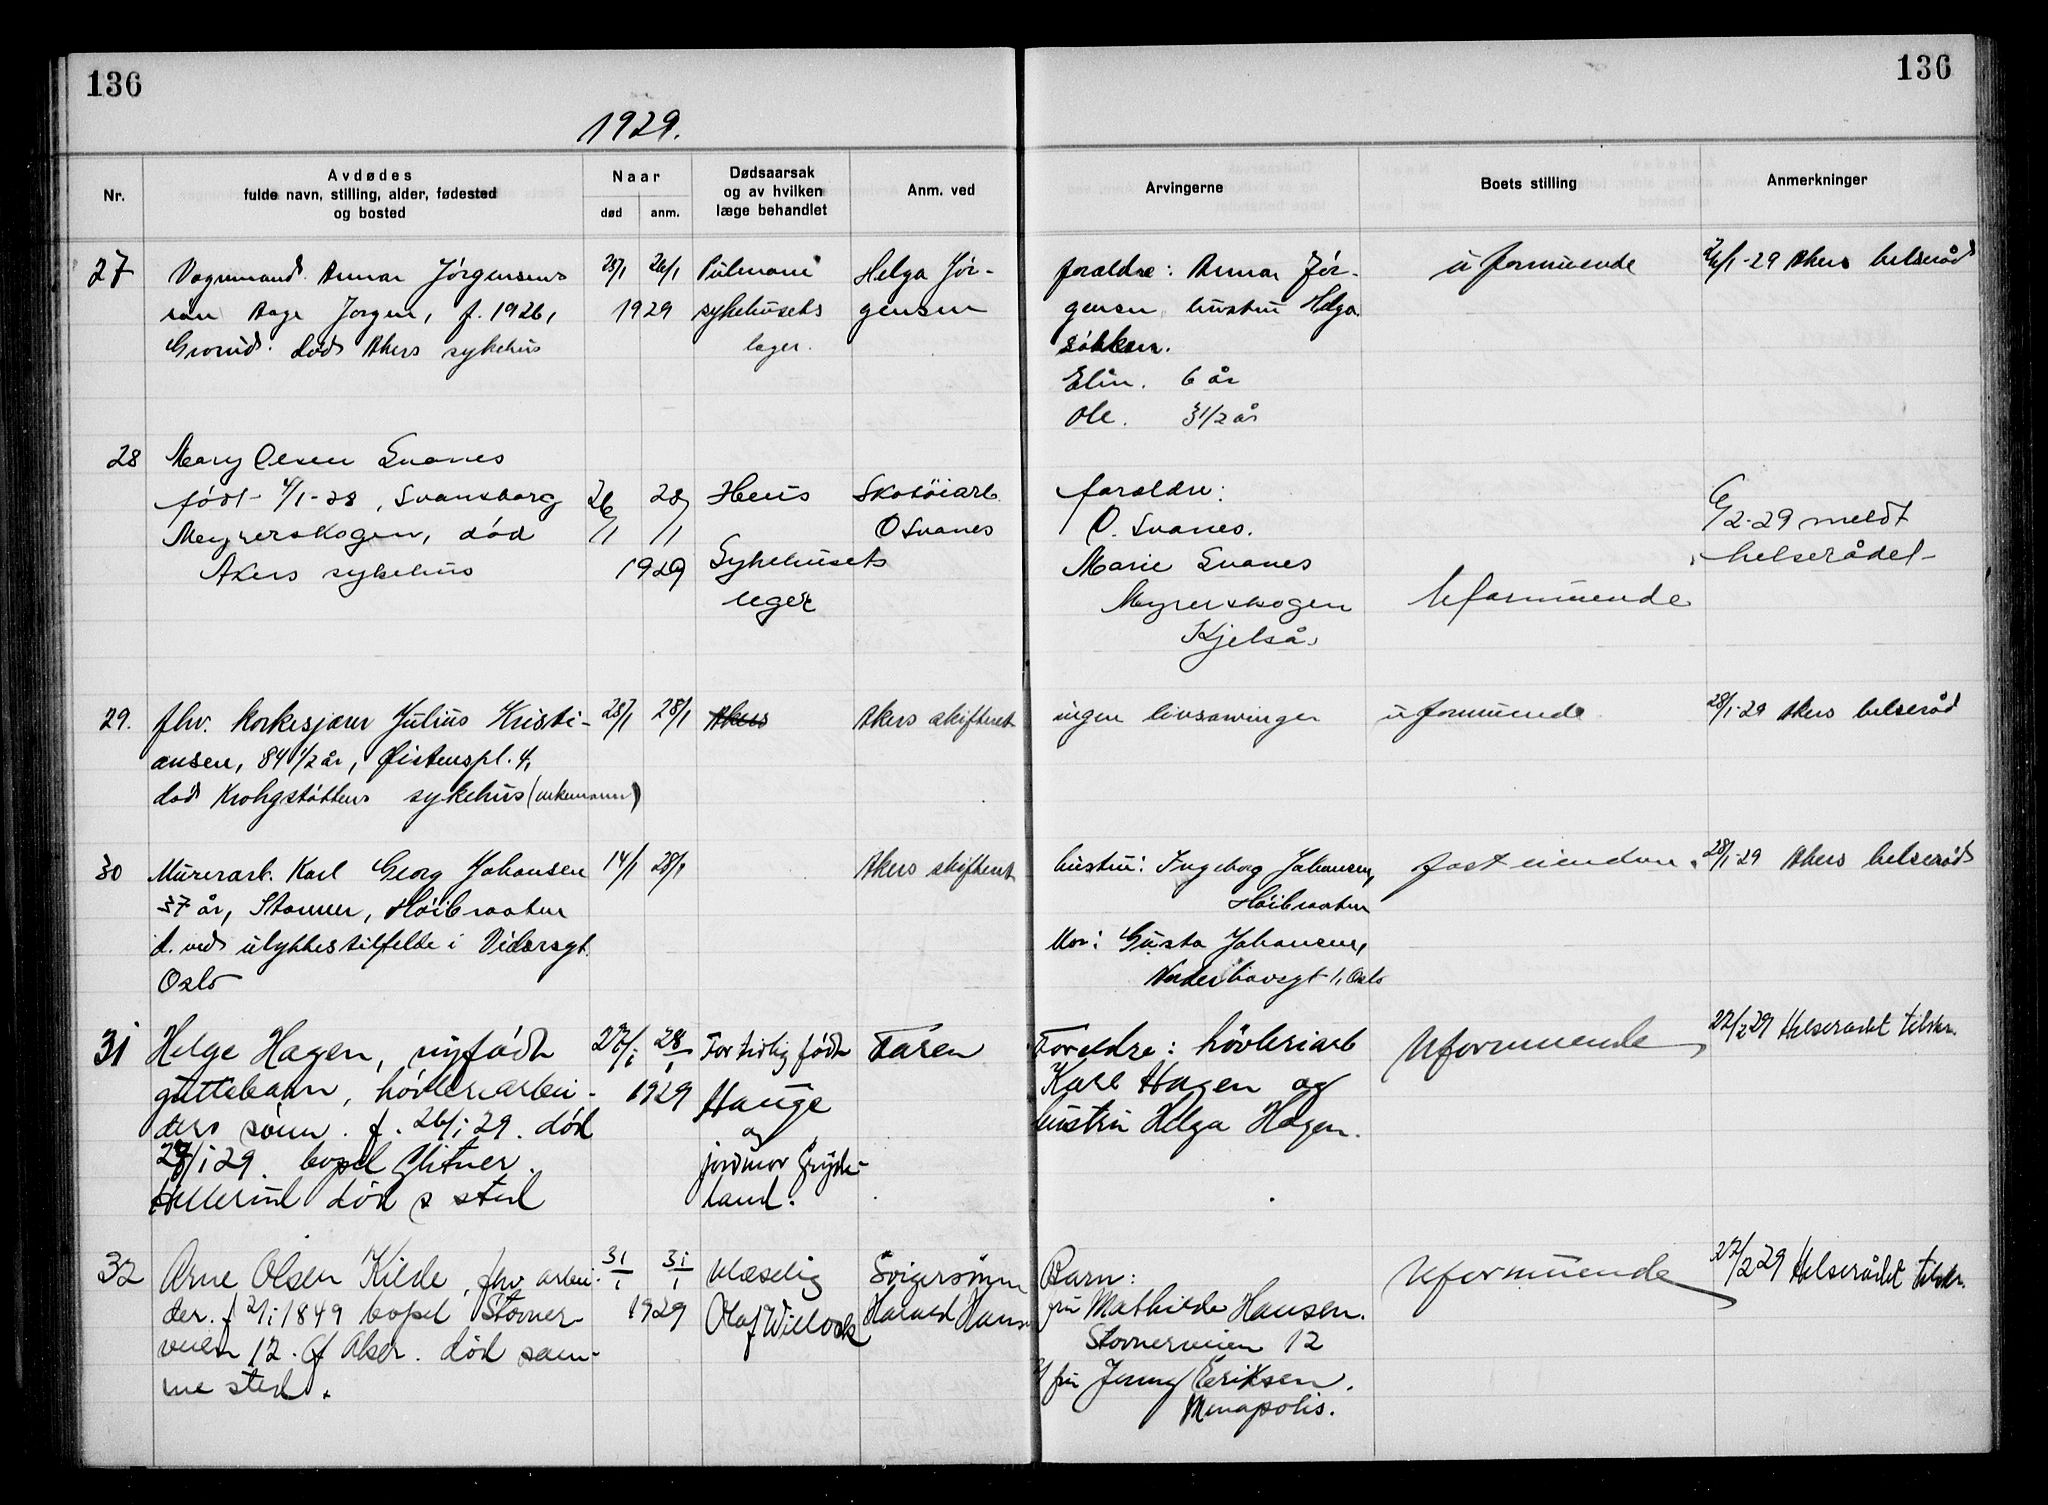 136
136
1929.
Nr.
Avdødes
fulde navn, stilling, alder, fødested
og bosted
Naar
død
anm.
Dødsaarsak
og av hvilken
læge behandlet
Anm. ved
Arvingerne
Boets stilling
Anmerkninger
27
Vognmand Annar Jørgensens
søn Aage Jørgen, f. 1926,
Grorud. død Akers sykehus
25/1 26/1
1929
sykehusets
læger.
Helga Jør-
gensen
foraldre: Annar Jør-
gensen hustru Helga
søsken.
Elin. 6 år
Ole. 3 1/2 år
uformuende
26/1-29 Akers helseråd
28
Mary Olsen Svanes
født 4/1-28, Svansborg
Meyrerskogen, død
Akers sykehus
26/1 28/1
1929
Sykehusets
leger
Skotöiarb.
O Svanes
foraldre:
O. Svanes.
Marie Svanes
Meyrerskogen
Kjelså.
Uformuende
6/2-29 meldt
helserådet
29.
fhv. korkesjærer Julius Kristi-
ansen, 84 1/2 år, Østenspl. 4,
død Krohgstøttens sykehus (enkemann)
28/1 28/1
Akers
Akers skifterett
ingen livsarvinger
uformuende
28/1-29 Akers helseråd
30
Murerarb. Karl Georg Johansen
37 år, Stovner, Høibraaten
d. ved ulykkestilfelde i Vidarsgt.
Oslo
14/1 28/1
Akers skifterett
hustru: Ingeborg Johansen,
Høibraaten
Mor: Gusta Johansen,
Nordenhovsgt 1, Oslo
fast eiendom
28/1-29 Akers helseråd
31
Helge Hagen, nyfødt
guttebarn, høvleriarbei-
ders sønn. f. 26/1 29. død
27/1 29. bopel Glitner.
Hellerud død s sted
27/1 28/1
1929
For tidlig født
Hauge
og
jordmor Gryde-
land.
Faren
Foreldre: høvleriarb
Karl Hagen og
hustru Helga Hagen.
Uformuende
22/2 29 Helserådet tilskr.
32
Arne Olsen Kilde, fhv. arbei-
der. f 2/1 1849 bopel Stovner-
veien 12. Ø Aker. død sam-
me sted.
31/1 31/1
1929
Ulæselig
Olaf Willock
Svigersønn
Harald Hans.
Barn:
fru Mathilde Hansen.
Stovnerveien 12
2/ fru Jenny Eriksen.
Minapolis.
Uformuende
22/2 29 Helserådet tilskr.